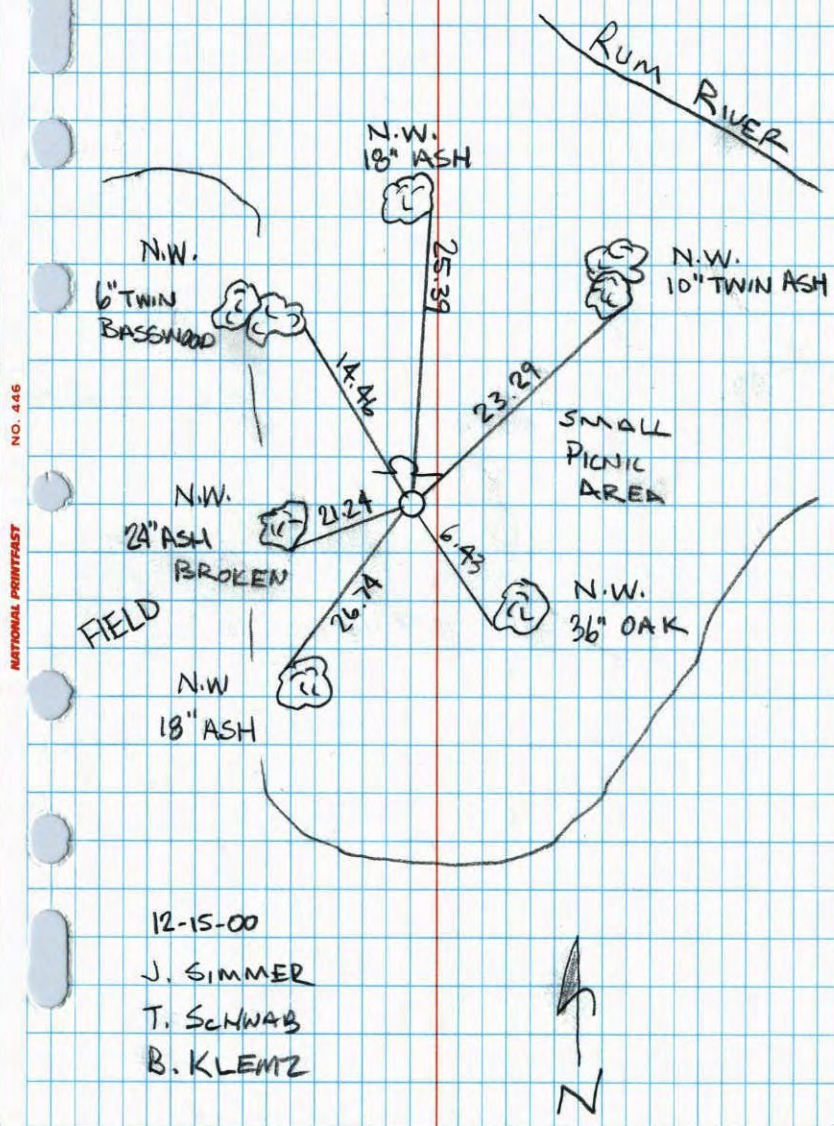 RUM RIVER
N.W.
18" ASH
25.39
N.W.
10" TWIN ASH
N.W.
6" TWIN
BASSWOOD
14.46
23.29
SMALL
PICNIC
AREA
N.W.
24" ASH
BROKEN
21.24
6.43
N.W.
36" OAK
26.74
FIELD
N.W
18" ASH
12-15-00
J. SIMMER
T. SCHWAB
B. KLEMZ
N
NO. 446
NATIONAL PRINTFAST